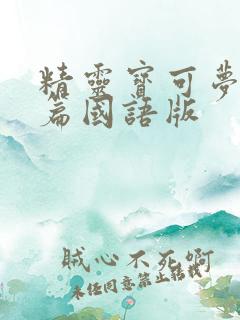 精靈寶可夢
篇國語版
賊心不死啊
未经同意禁止转载